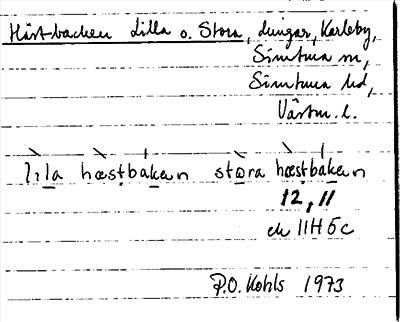 Härsbacken Lilla o. Stora, lungar, Karleby,
Simtuna sn,
Simtuna hd,
Västm. l.
lila hæstbakan stora hæstbakan
12, 11
ek 11H5c
P.O. Kohls 1973